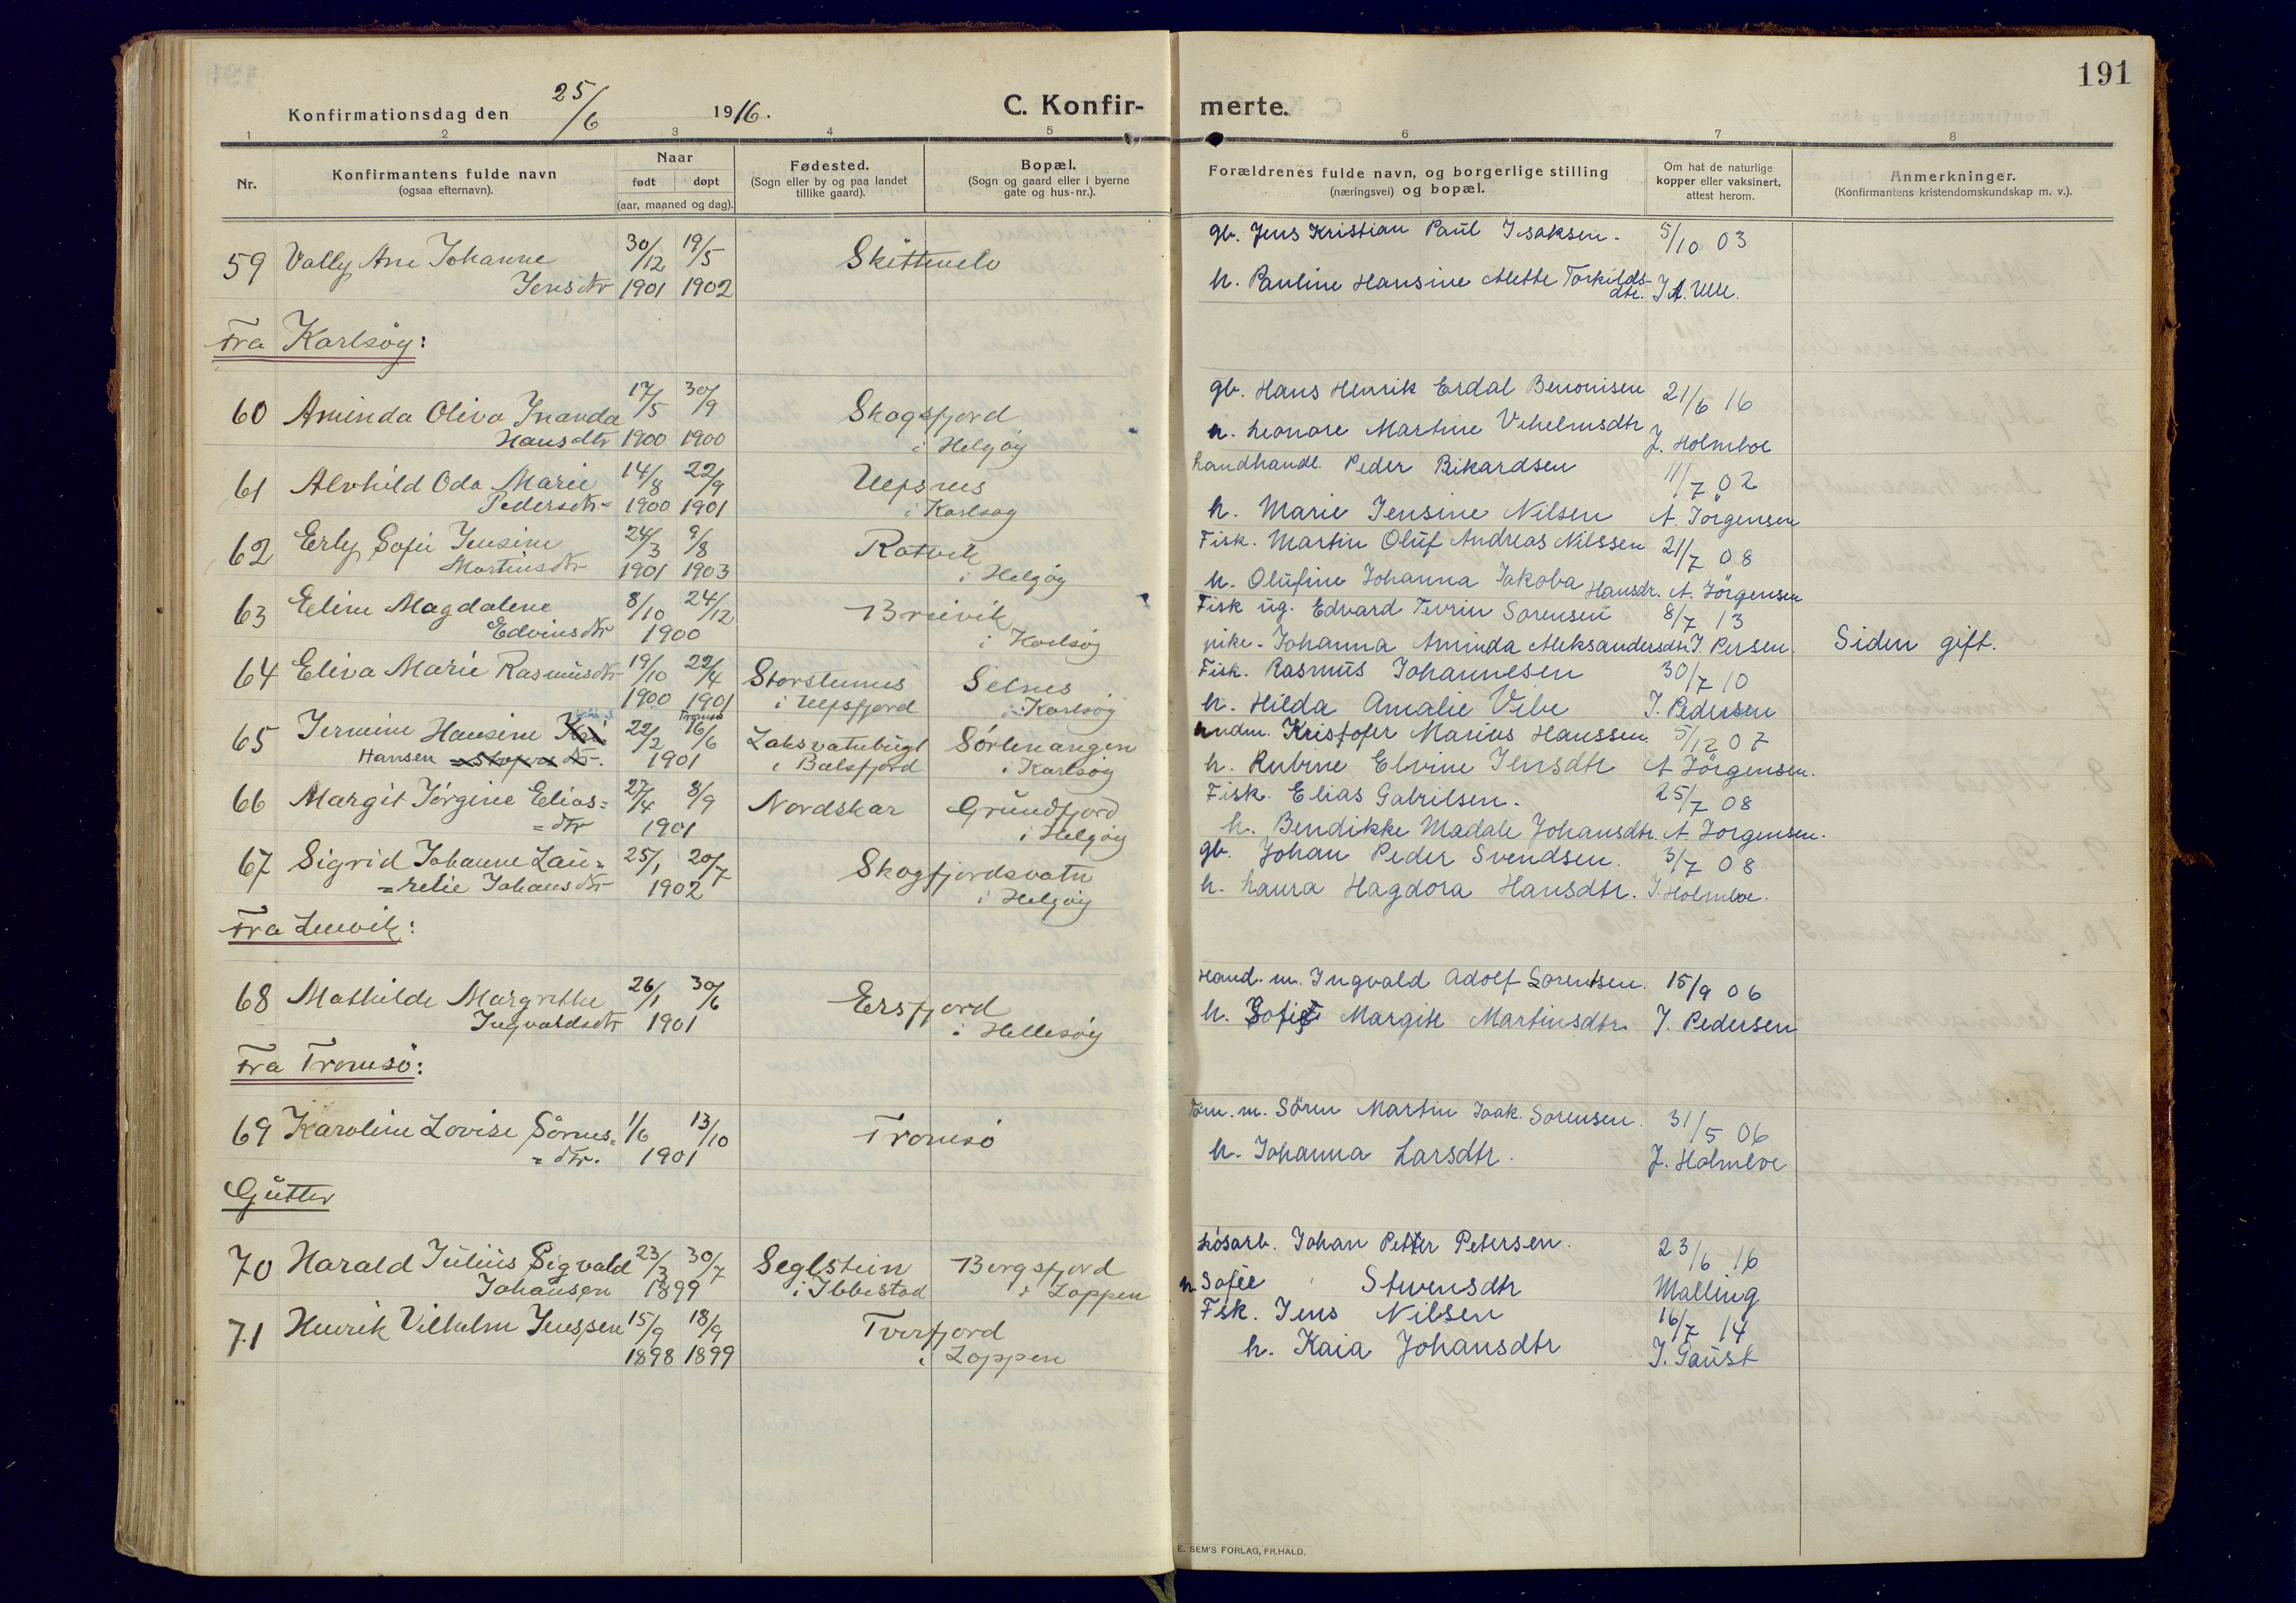 191
Konfirmationsdag den 25/6 1916.
C. Konfir- merte.
1 2 3 4 5 6 7 8
Nr.
Konfirmantens fulde navn
(ogsaa efternavn).
Naar
født døpt
(aar, maaned og dag).
Fødested.
(Sogn eller by og paa landet
tillike gaard).
Bopæl.
(Sogn og gaard eller i byerne
gate og hus-nr.).
Forældrenes fulde navn, og borgerlige stilling
(næringsvei) og bopæl.
Om hat de naturlige
kopper eller vaksinert,
attest herom.
Anmerkninger.
(Konfirmantens kristendomskundskap m. v.).
59 Vally Ane Johanne 30/12 19/5 Skittenelv gb. Jens Kristian Paul Isaksen. 5/10 03
Jensdtr 1901 1902 h. Pauline Hansine Mette Torkilds-
dtr. J. A. Ulle.
Fra Karlsøy:
60 Aminda Oliva Inanda 17/5 30/9 Skogsfjord gb. Hans Henrik Erdal Benonisen 21/6 16
Hansdtr 1900 1900 i Helgøy h. Leonore Martine Vihelmsdtr J. Holmboe
61 Alvhild Oda Marie 14/8 22/9 Ulfsnes Landhandl. Peder Rikardsen 11/7 02
Pedersdtr 1900 1901 i Karlsøy h. Marie Jensine Nilsen A. Jörgensen
62 Erly Sofie Jensine 24/3 9/8 Rotvik Fisk. Martin Oluf Andreas Nilssen 21/7 08
Martinsdtr 1901 1903 i Helgøy h. Olufine Johanna Jakoba Hansdr. A. Jörgensen
63 Eline Magdalene 8/10 24/12 Breivik Fisk ug. Edvard Tevrin Sorensen 8/7 13
Edvinsdtr 1900 i Karlsøy pike. Johanna Aminda Aleksandersdtr. J. Persen. Siden gift.
64 Eliva Marie Rasmusdtr 19/10 22/4 Storslumes Selnes Fisk. Rasmus Johannesen 30/7 10
1900 1901 i Ulfsfjord i Karlsøy h. Hilda Amalie Vibe J. Pedersen
Tromsø
65 Jermine Hansine Kri 22/2 16/6 Laksvatnbugt Sörlenangen Kristofer Marius Hanssen. 5/12 07
Hansen =stofersdtr. 1901 i Balsfjord i Karlsøy h. Rubine Elvine Jensdtr A Jörgensen.
66 Margit Jörgine Elias= 27/4 8/9 Nordskar Grundfjord Fisk. Elias Gabrilsen. 25/7 08
=dtr 1901 i Helgøy h. Bendikke Madale Johansdtr. A. Jorgensen.
67 Sigrid Johanne Lau= 25/1 20/7 Skogfjordsvatn gb. Johan Peder Svendsen. 3/7 08
=relie Johansdtr 1902 i Helgøy h. Laura Hagdora Hansdtr. J. Holmboe.
Fra Lenvik:
68 Mathilde Margrethe 26/1 30/6 Ersfjord Hand. m. Ingvald Adolf Lorentsen. 15/9 06
Ingvaldsdtr 1901 i Hillesøy h. Sofie Margit Martinsdtr. J. Pedersen
Fra Tromsö:
69 Karoline Lovise Sörens= 1/6 13/10 Tromsö Töm. m. Sören Martin Isak. Sorensen. 31/5 06
=dtr. 1901 h. Johanna Larsdtr. J. Holmboe
Gutter
70 Harald Julius Sigvald 23/3 30/7 Seglstein Bergsfjord Lösarb. Johan Petter Petersen. 23/6 16
Johansen 1899 i Ibbestad i Loppen h. Sofie Stivensdtr Malling
71 Henrik Vilhelm Jenssen 15/9 18/9 Tverfjord Fsk. Jens Nilsen 16/7 14
1898 1899 i Loppen h. Kaia Johansdtr J. Gaust
E. SEM'S FORLAG, FR.HALD.